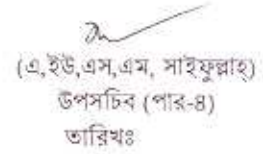 (এ,ইউ,এস,এম, সাইফুল্লাহ)
উপসচিব (পার-৪)
তারিখঃ